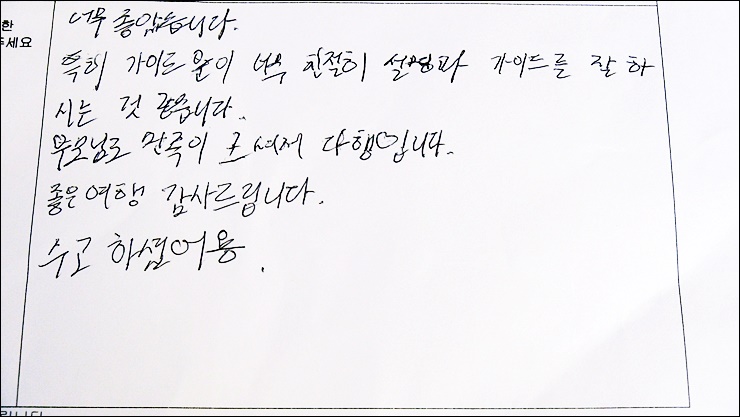 한
주세요
너무 좋았습니다.
특히 가이드 분이 너무 친절히 설명과 가이드를 잘 하
시는 것 같습니다.
부모님도 만족이 크셔서 다행입니다.
좋은여행 감사드립니다.
수고 하셨어용.